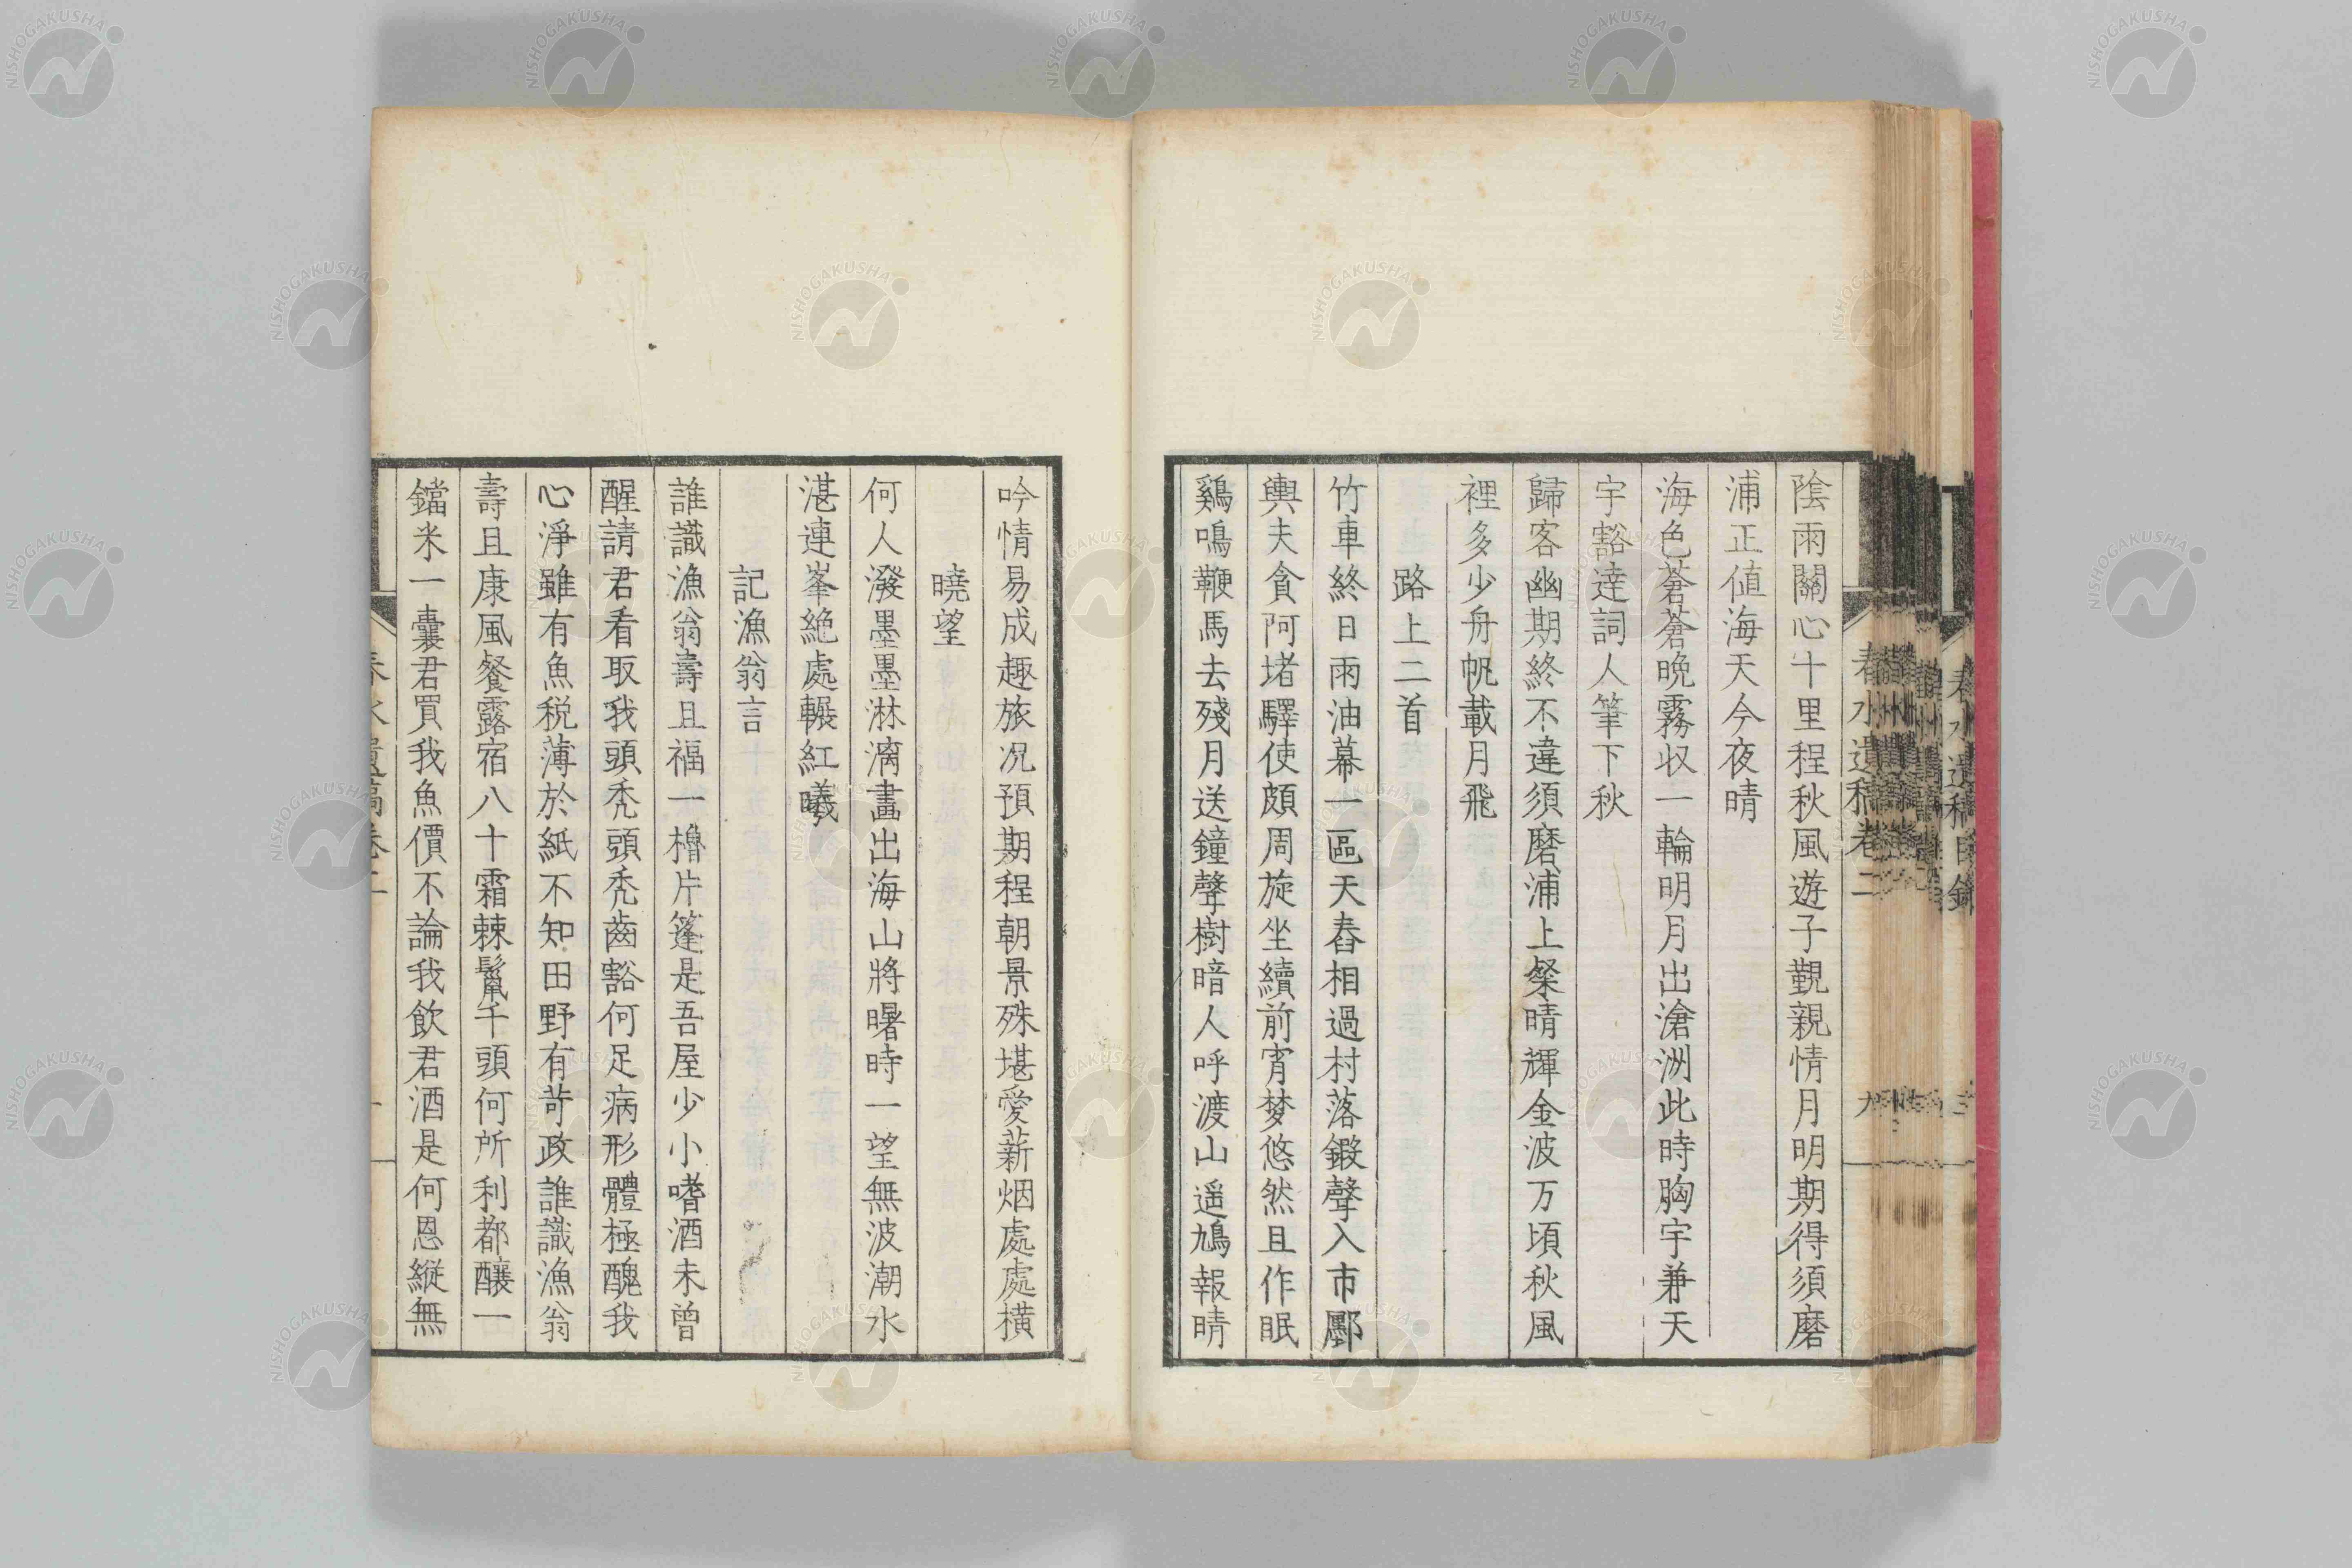 陰雨關心十里程秋風遊子覲親情月明期得須磨
浦正值海天今夜晴
海色蒼蒼晩霧収一輪明月出滄洲此時胸宇兼天
宇豁達詞人筆下秋
歸客幽期終不違須磨浦上粲晴輝金波万頃秋風
裡多少舟帆載月飛
路上二首
竹車終日雨油幕一區天舂相過村落鍛聲入市鄽
輿夫貪阿堵驛使頗周旋坐續前宵梦悠然且作眠
鷄鳴鞭馬去殘月送鐘聲樹暗人呼渡山遥鳩報晴
吟情易成趣旅况預期程朝景殊堪愛薪烟處處橫
曉望
何人潑墨墨淋漓畫出海山將曙時一望無波潮水
湛連峯絶處輾紅曦
記漁翁言
誰識漁翁壽且福一櫓片篷是吾屋少小嗜酒未曾
醒請君看取我頭禿頭禿齒豁何足病形體極醜我
心淨雖有魚税薄於紙不知田野有苛政誰識漁翁
壽且康風餐露宿八十霜棘鬣千頭何所利都釀一
鐺米一囊君買我魚價不論我飲君酒是何恩縱無
春水遺稿卷二
九
春水遺稿目錄
三
NISHOGAKUSHA